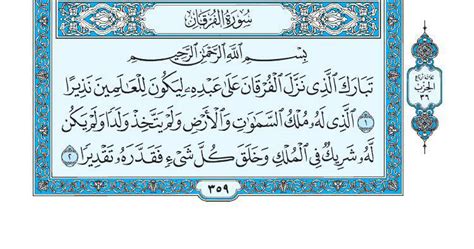 سُورَةُ الفُرْقَانِ
بِسْمِ اللَّهِ الرَّحْمَٰنِ الرَّحِيمِ
تَبَارَكَ الَّذِي نَزَّلَ الْفُرْقَانَ عَلَىٰ عَبْدِهِ لِيَكُونَ لِلْعَالَمِينَ نَذِيرًا
١ الَّذِي لَهُ مُلْكُ السَّمَاوَاتِ وَالْأَرْضِ وَلَمْ يَتَّخِذْ وَلَدًا وَلَمْ يَكُن
لَّهُ شَرِيكٌ فِي الْمُلْكِ وَخَلَقَ كُلَّ شَيْءٍ فَقَدَّرَهُ تَقْدِيرًا ٢
٣٥٩
الحِزْب
٣٦